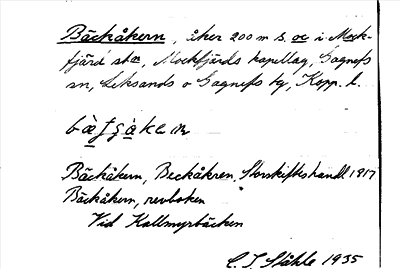 Bäckåkern, åker 200 m s. oc i Mock-
fjärd sta, Mockfjärds kapellag, Gagnefs
sn, Leksands o Gagnefs tg, Kopp. l.
Bäckåkern, Beckåkren, Storskifteshandl 1817
Bäckåkern, revboken
Vid Kallmyrbäcken
C. I. Ståhle 1935